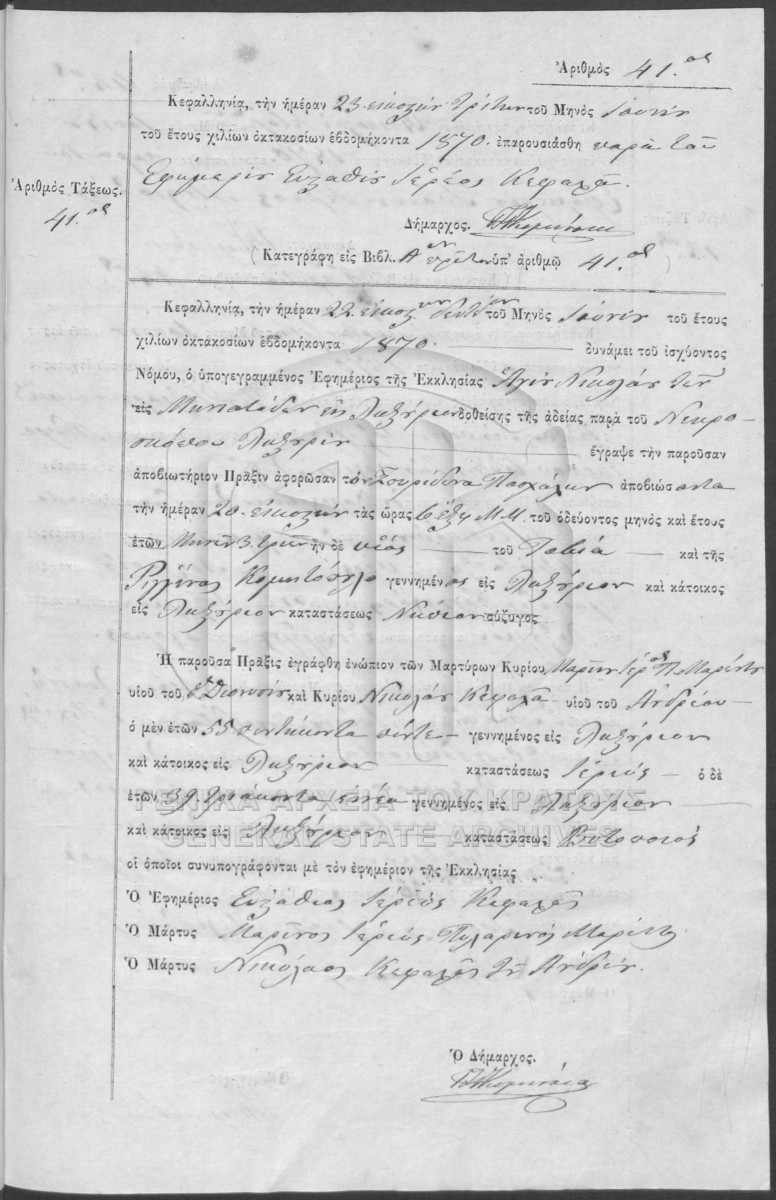 Ἀριθμὸς 41.ος
Κεφαλληνίᾳ, τὴν ἡμέραν 23. εἰκοστὴν τρίτην τοῦ Μηνὸς Ἰουνίου
τοῦ ἔτους χιλίων ὀκτακοσίων ἑβδομήκοντα 1870. ἐπαρουσιάσθη παρὰ τοῦ
Ἐφημερίου Εὐσταθίου Ἱερέως Κεφαλᾶ.
Ἀριθμὸς Τάξεως.
41.ος
Δήμαρχος.
(Κατεγράφη εἰς Βιβλ. Α ὑπ' ἀριθμῷ 41.ος)
Κεφαλληνίᾳ, τὴν ἡμέραν 22. εἰκοστὴν δευτέραν τοῦ Μηνὸς Ἰουνίου τοῦ ἔτους
χιλίων ὀκτακοσίων ἑβδομήκοντα 1870. δυνάμει τοῦ ἰσχύοντος
Νόμου, ὁ ὑπογεγραμμένος Ἐφημέριος τῆς Ἐκκλησίας Ἁγίου Νικολάου τῶν
εἰς Μηνιατάδων εἰς Ληξούριον δοθείσης τῆς ἀδείας παρὰ τοῦ Νεκρο-
σκόπου Ληξουρίου ἔγραψε τὴν παροῦσαν
ἀποβιωτήριον Πρᾶξιν ἀφορῶσαν τὸν Σπυρίδωνα Πασχάλην ἀποβιώσαντα
τὴν ἡμέραν 20. εἰκοστὴν τὰς ὥρας 6 ἕξη Μ.Μ. τοῦ ὁδεύοντος μηνὸς καὶ ἔτους
ἐτῶν Μηνῶν 3. τριῶν ἦν δὲ υἱὸς τοῦ Τωβία καὶ τῆς
Ῥεγγίνας γεννημένος εἰς Ληξούριον καὶ κάτοικος
εἰς Ληξούριον καταστάσεως Νήπιον σύζυγος
Ἡ παροῦσα Πρᾶξις ἐγράφθη ἐνώπιον τῶν Μαρτύρων Κυρίου Μαρίνου Ἱερέος Π. Μαρέντη
υἱοῦ τοῦ Διονυσίου καὶ Κυρίου Νικολάου Κεφαλᾶ υἱοῦ τοῦ Ἀνδρέου
ὁ μὲν ἐτῶν 55 πεντήκοντα πέντε γεννημένος εἰς Ληξούριον
καὶ κάτοικος εἰς Ληξούριον καταστάσεως Ἱερεύς ὁ δὲ
ἐτῶν 39 τριάκοντα ἐννέα γεννημένος εἰς Ληξούριον
καὶ κάτοικος εἰς Ληξούριον καταστάσεως
οἱ ὁποῖοι συνυπογράφονται μὲ τὸν ἐφημέριον τῆς Ἐκκλησίας
Ὁ Ἐφημέριος Εὐστάθιος Ἱερεὺς Κεφαλᾶς
Ὁ Μάρτυς Μαρῖνος Ἱερεὺς Πυλαρινός Μαρέντης
Ὁ Μάρτυς Νικόλαος Κεφαλᾶς τοῦ Ἀνδρέου.
Ὁ Δήμαρχος.
ΓΕΝΙΚΑ ΑΡΧΕΙΑ ΤΟΥ ΚΡΑΤΟΥΣ
GENERAL STATE ARCHIVES